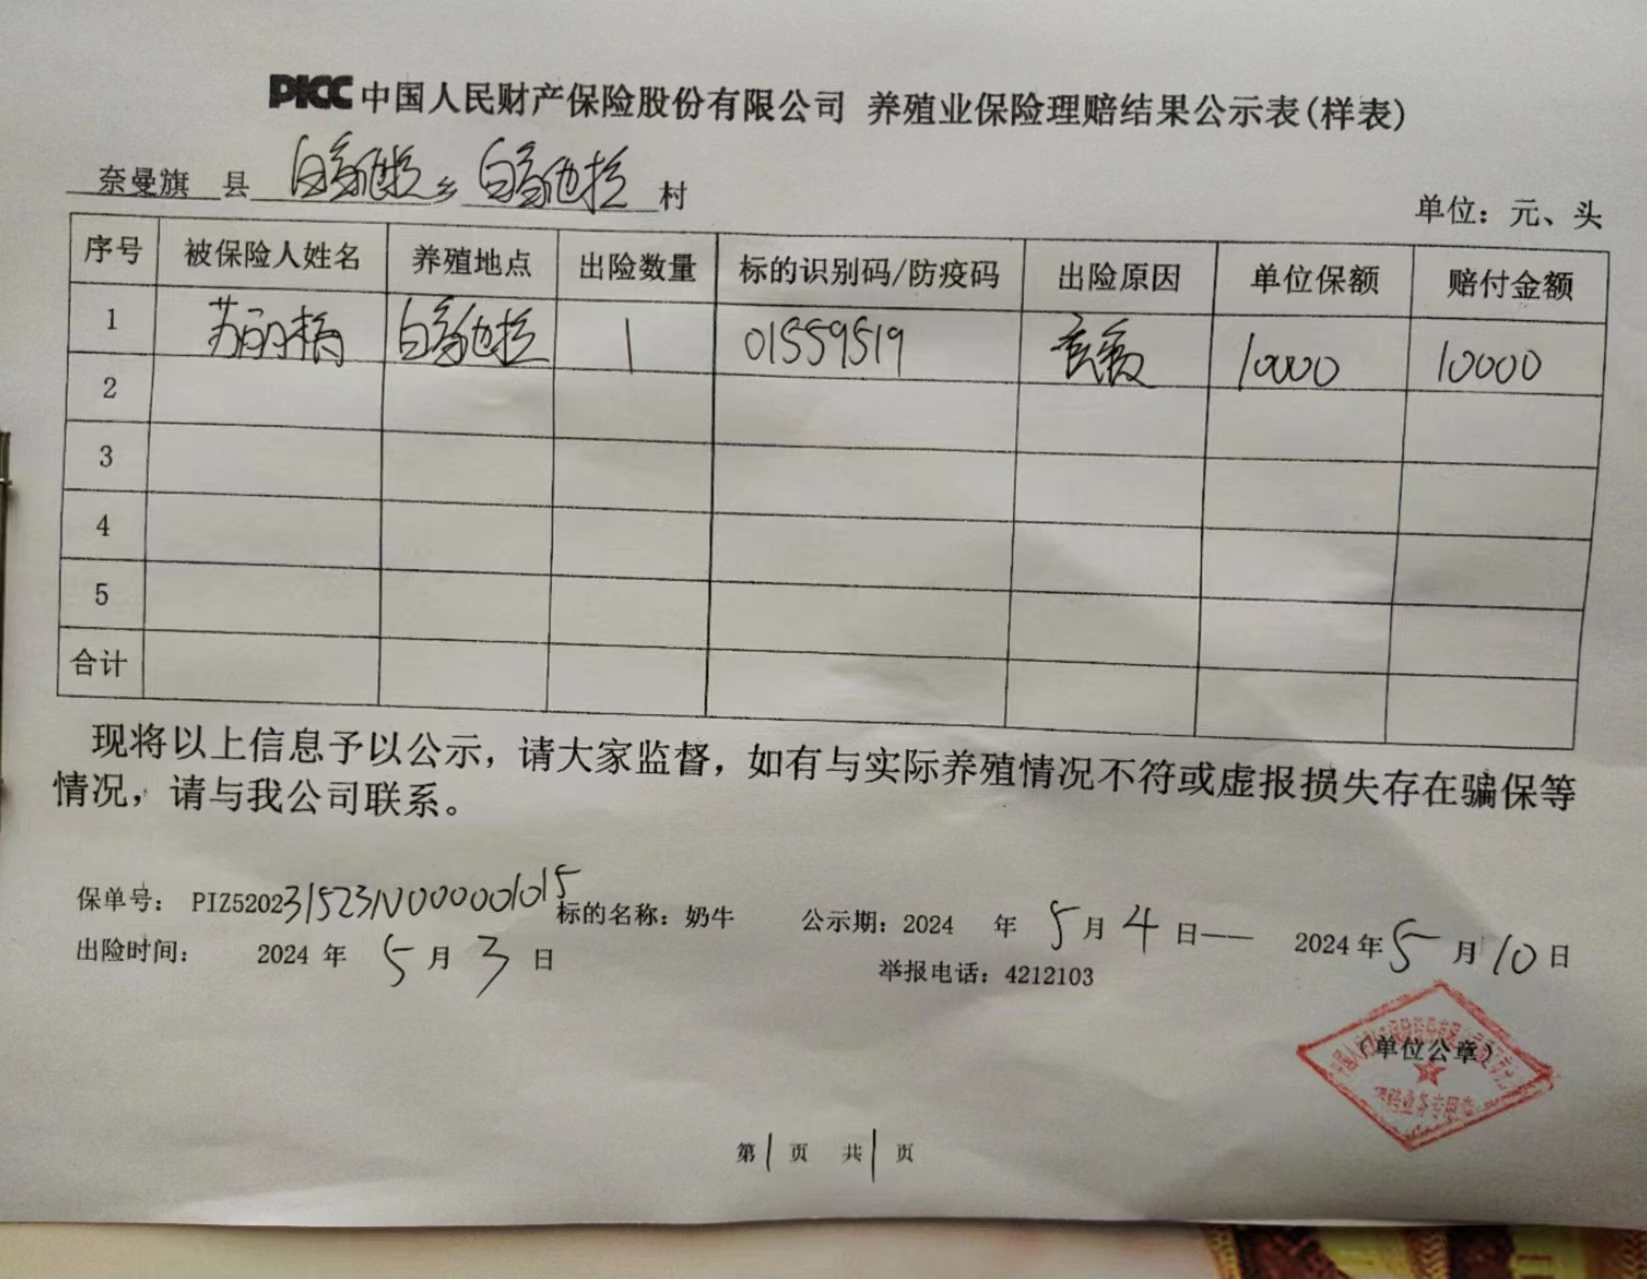 PICC 中国人民财产保险股份有限公司 养殖业保险理赔结果公示表(样表)
奈曼旗 县 白音他拉 乡 白音他拉 村
单位：元、头
序号 被保险人姓名 养殖地点 出险数量 标的识别码/防疫码 出险原因 单位保额 赔付金额
1 苏丽梅 白音他拉 1 01559519 10000 10000
2
3
4
5
合计
现将以上信息予以公示，请大家监督，如有与实际养殖情况不符或虚报损失存在骗保等
情况，请与我公司联系。
保单号： PIZ520231523N000001015 标的名称：奶牛 公示期：2024 年 5 月 4 日—— 2024 年 5 月 10 日
出险时间： 2024 年 5 月 3 日 举报电话：4212103
（单位公章）
业务专用章
第 1 页 共 1 页